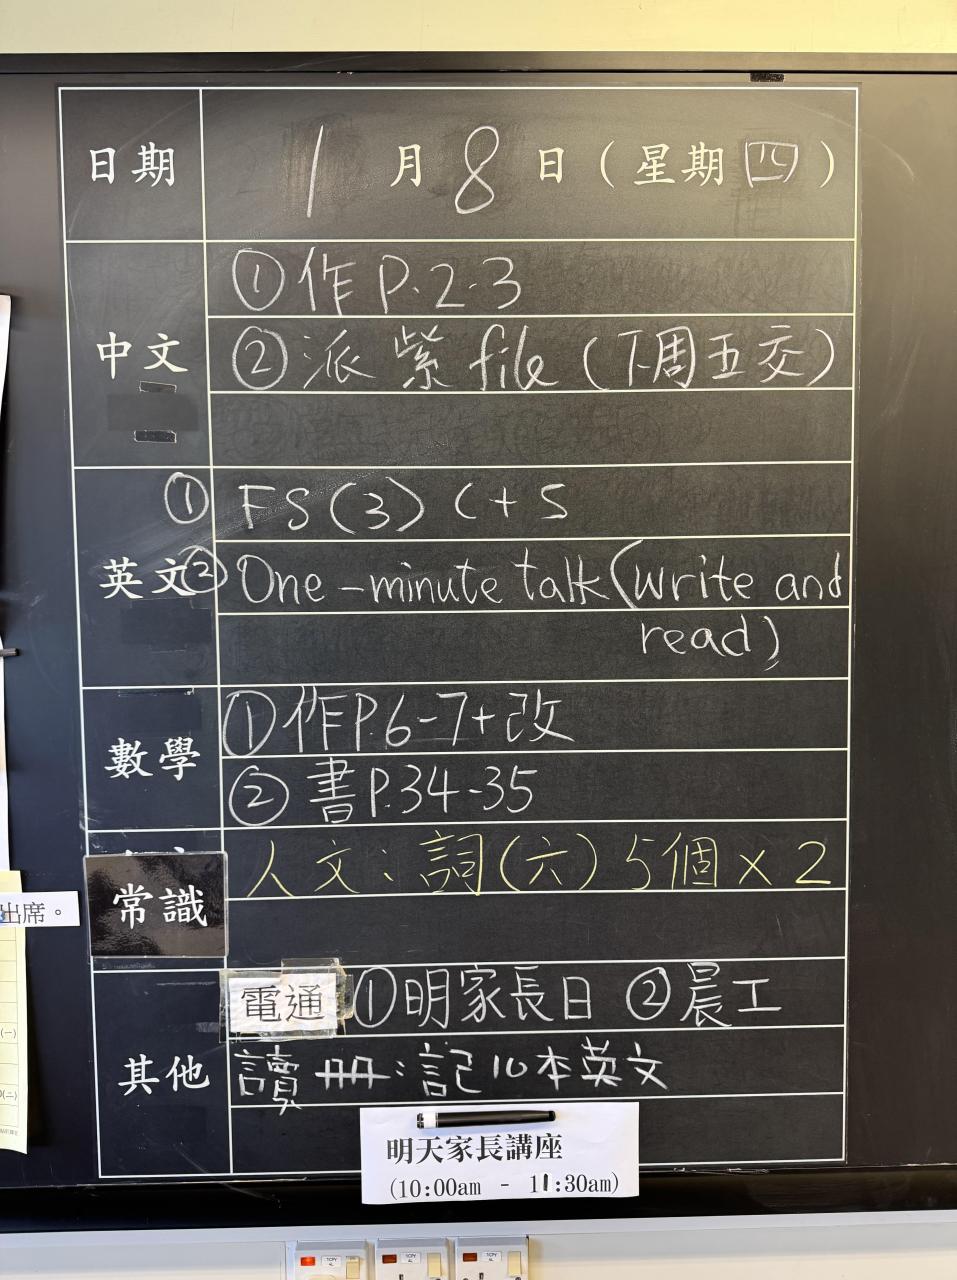 日期 1月8日(星期四)
中文
①作P.2-3
②派紫file(下周五交)
英文
①FS(3) C+S
②One-minute talk(write and
read)
數學
①作P.6-7+改
②書P.34-35
常識
人文:詞(六)5個×2
其他
電通 ①明家長日 ②晨工
讀冊:記10本英文
明天家長講座
(10:00am - 11:30am)
出席。
(一)
(二)